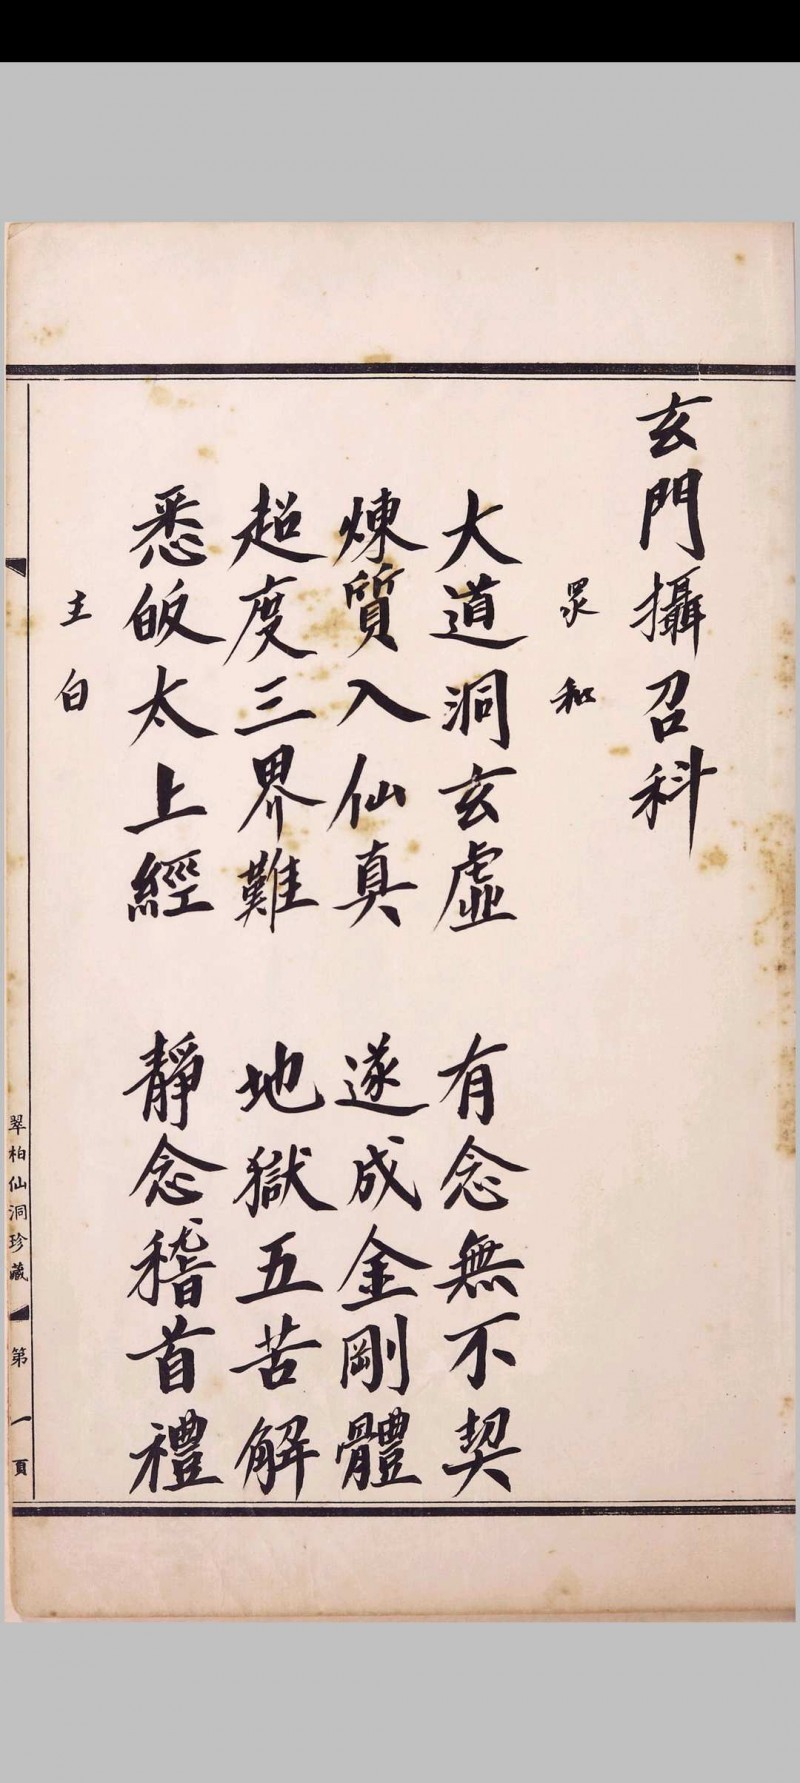 玄門攝召科
眾和
大道洞玄虛 有念無不契
煉質入仙真 遂成金剛體
超度三界難 地獄五苦解
悉皈太上經 靜念稽首禮
主白
翠柏仙洞珍藏 第一頁